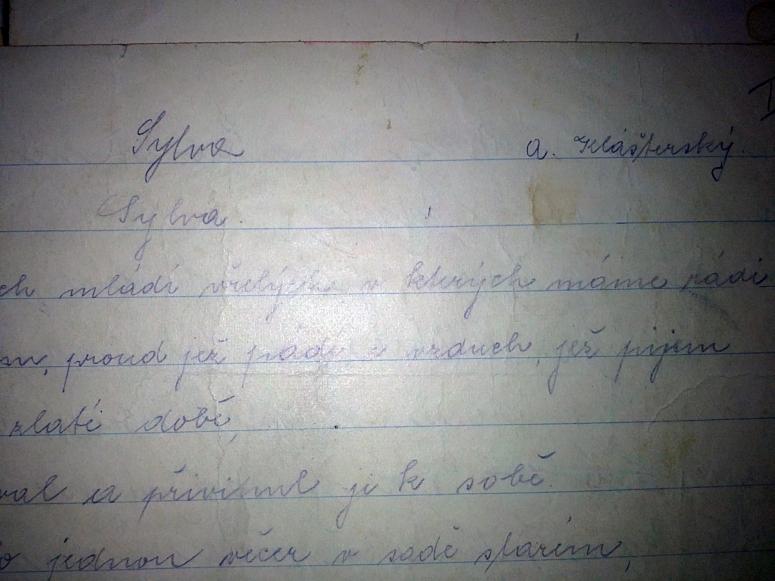 Sylva a. Klášterský.
Sylva.
ch mládí vřelých, v kterých máme rádi
m, proud jež pádí i vzduch, jež pijem
zlaté době,
val a přivinul ji k sobě.
jednou večer v sadě starém,